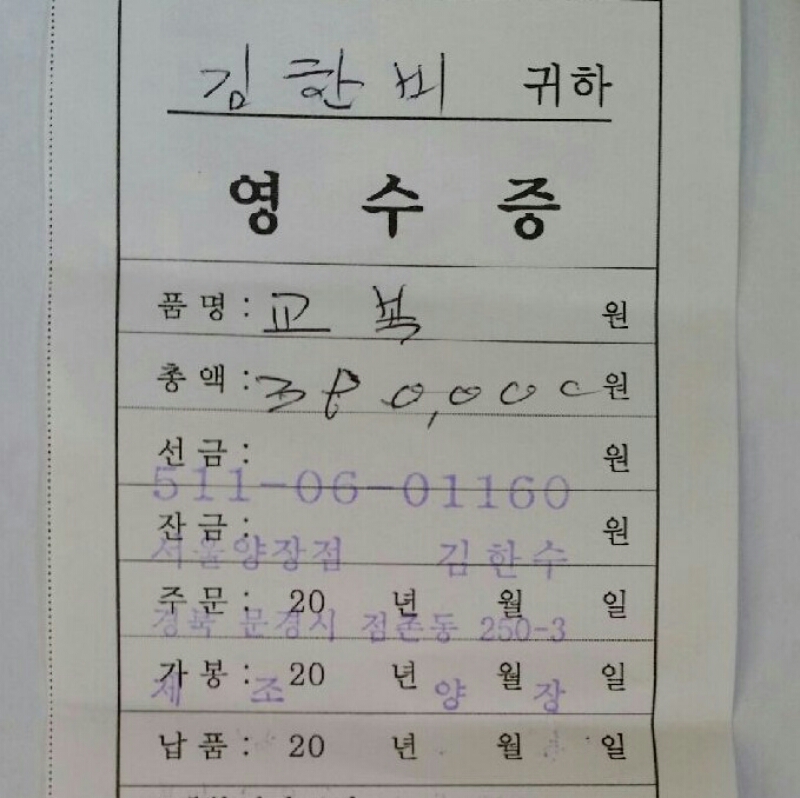 김한비 귀하
영수증
품명: 교복 원
총액: 380,000 원
선금: 원
511-06-01160
잔금: 원
서울양장점 김한수
주문: 20 년 월 일
경북 문경시 점촌동 250-3
가봉: 20 년 월 일
제조 양장
납품: 20 년 월 일